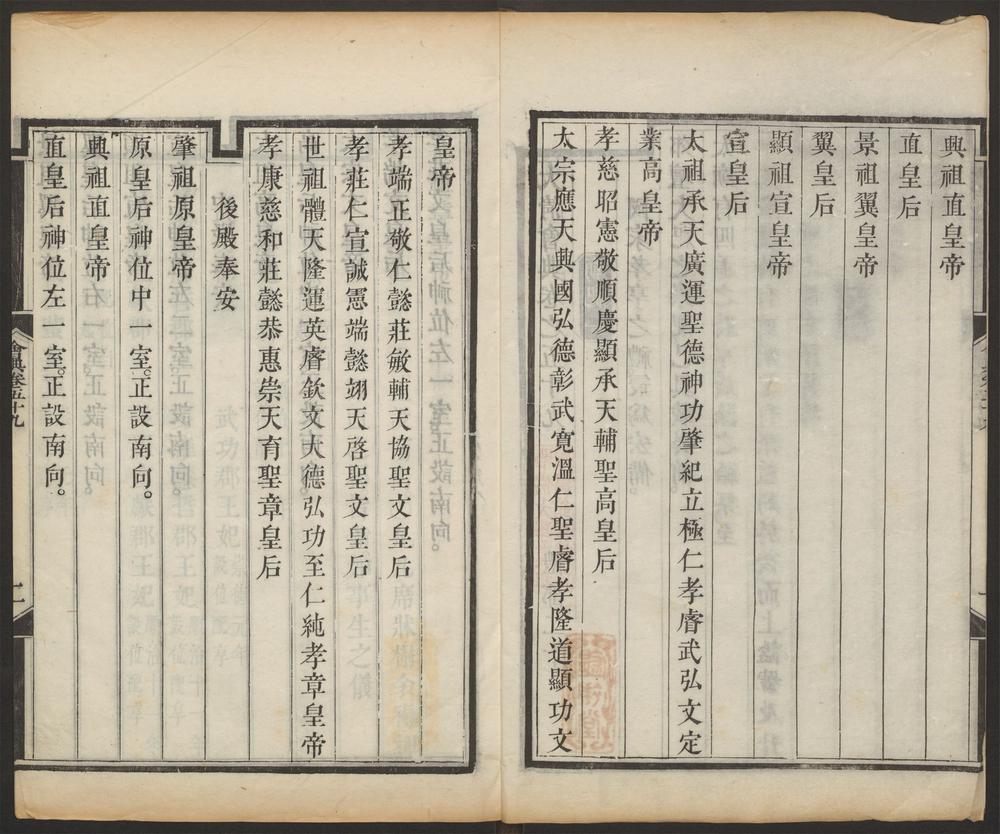 興祖直皇帝
直皇后
景祖翼皇帝
翼皇后
顯祖宣皇帝
宣皇后
太祖承天廣運聖德神功肇紀立極仁孝睿武弘文定
業高皇帝
孝慈昭憲敬順慶顯承天輔聖高皇后
太宗應天興國弘德彰武寬溫仁聖睿孝隆道顯功文
皇帝
孝端正敬仁懿莊敏輔天協聖文皇后
孝莊仁宣誠憲端懿翊天啓聖文皇后
世祖體天隆運英睿欽文大德弘功至仁純孝章皇帝
孝康慈和莊懿恭惠崇天育聖章皇后
後殿奉安
肇祖原皇帝
原皇后神位中一室。正設南向。
興祖直皇帝
直皇后神位左一室。正設南向。
會典卷五十九
二